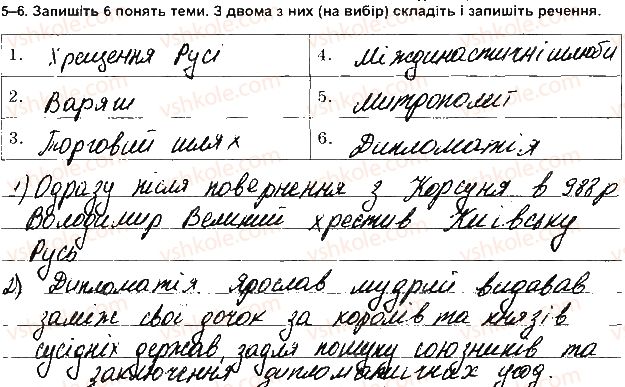 5–6. Запишіть 6 понять теми. З двома з них (на вибір) складіть і запишіть речення.
1. Хрещення Русі
4. Міждинастичні шлюби
2. Варяги
5. Митрополії
3. Торговий шлях
6. Дипломатія
1) Одразу після повернення з Корсуня в 988 р
Володимир Великий хрестив Київську
Русь
2) Дипломатія Ярослав мудрий видавав
заміж свої дочок за королів та князів
сусідніх держав, задля пошуку союзників та
заключення дипломатичних угод.